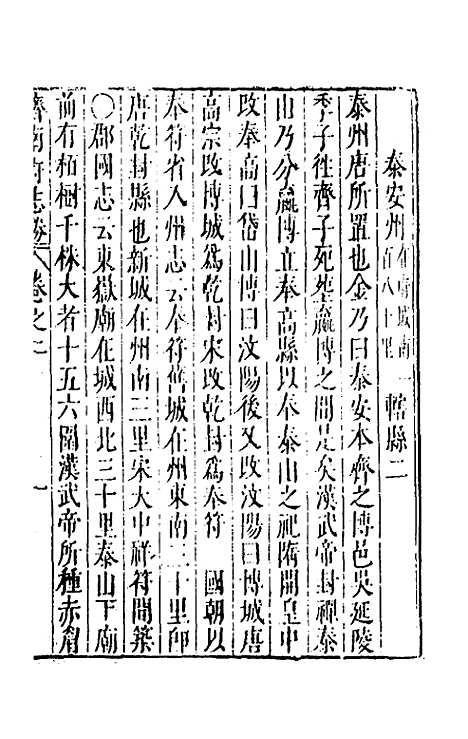 泰安州在府城南一百八十里 轄縣二
泰州唐所置也金乃曰泰安本齊之博邑吳延陵
季子徃齊子死塟嬴博之間是矣漢武帝封禪泰
山乃分嬴博立奉高縣以奉泰山之祀隋開皇中
改奉高曰岱山博曰汶陽後又改汶陽曰博城唐
高宗改博城爲乾封宋改乾封爲奉符 國朝以
奉符省入州志云奉符舊城在州東南三十里卽
唐乾封縣也新城在州南三里宋大中祥符間築
○郡國志云東嶽廟在城西北三十里泰山下廟
前有栢樹千株大者十五六圍漢武帝所種赤眉
卷之二